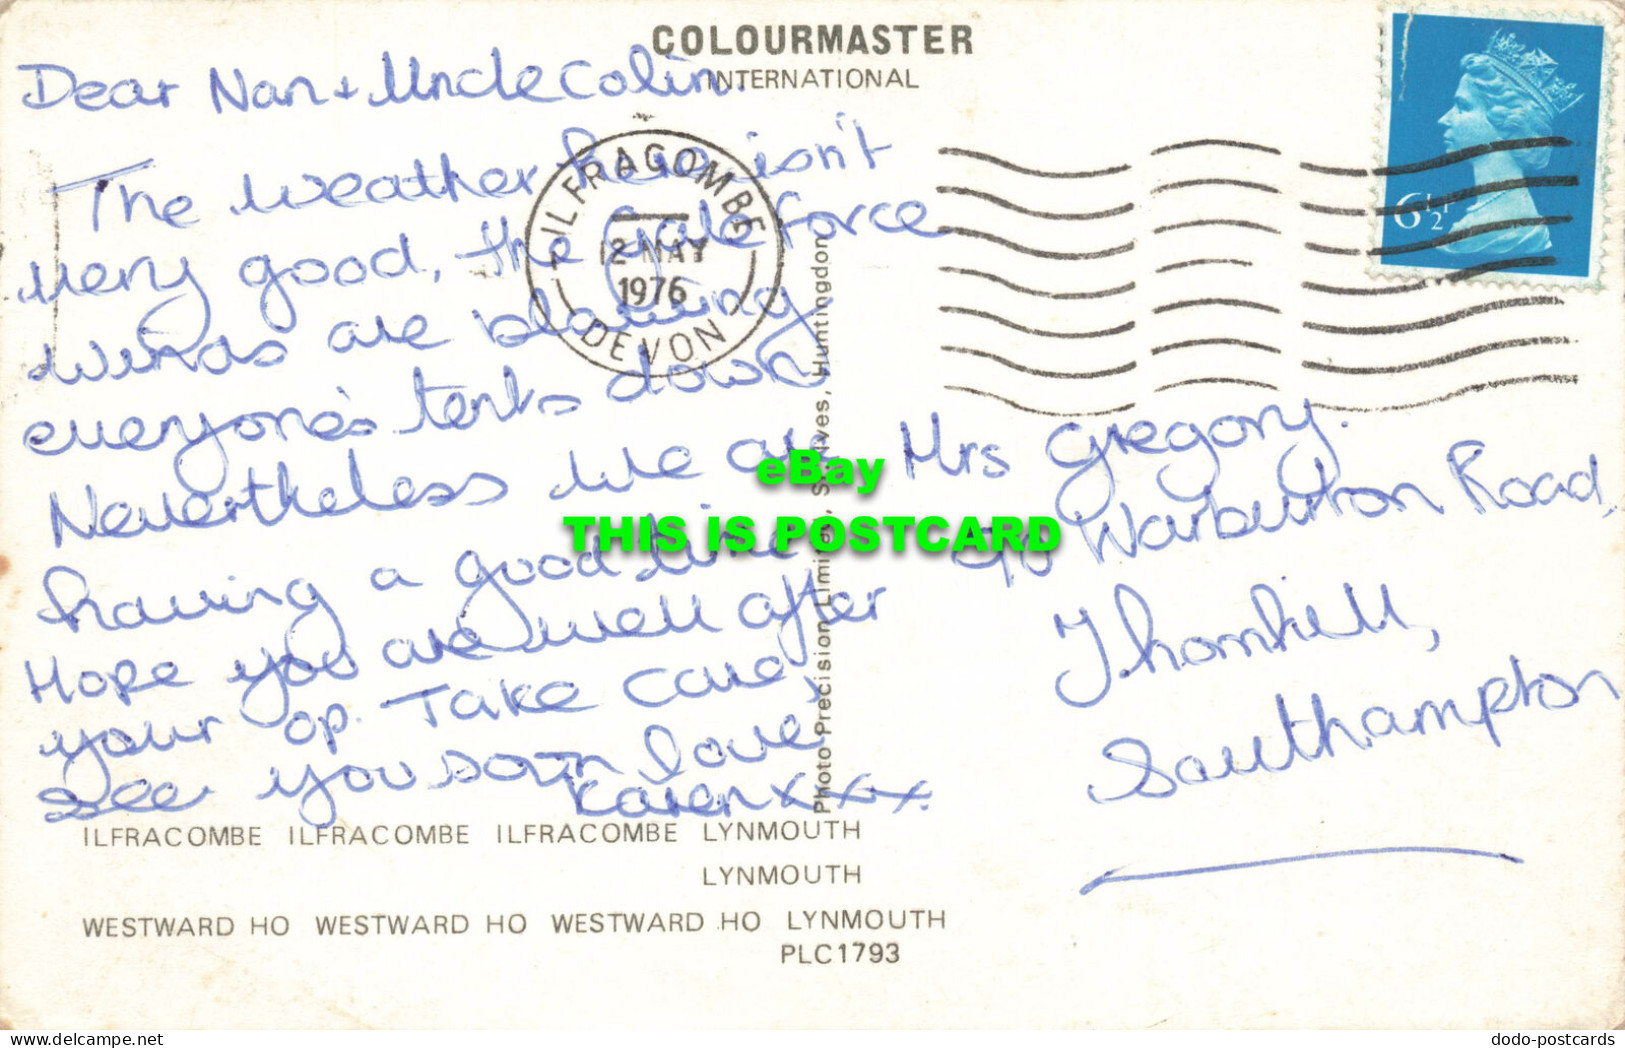 COLOURMASTER
INTERNATIONAL
Dear Nan + Uncle Colin.
The weather here isn't
very good, the Gale force
winds are blowing
everyone's tents down
Nevertheless we are
having a good time
Hope you are well after
your op. Take care,
see you soon love,
Karen xxxx
ILFRACOMBE
12 MAY
1976
DEVON
6½P
Mrs Gregory.
Warburton Road,
Thornhill,
Southampton
Photo Precision Limited, St. Ives, Huntingdon
eBay
THIS IS POSTCARD
ILFRACOMBE ILFRACOMBE ILFRACOMBE LYNMOUTH
LYNMOUTH
WESTWARD HO WESTWARD HO WESTWARD HO LYNMOUTH
PLC1793
dodo-postcards